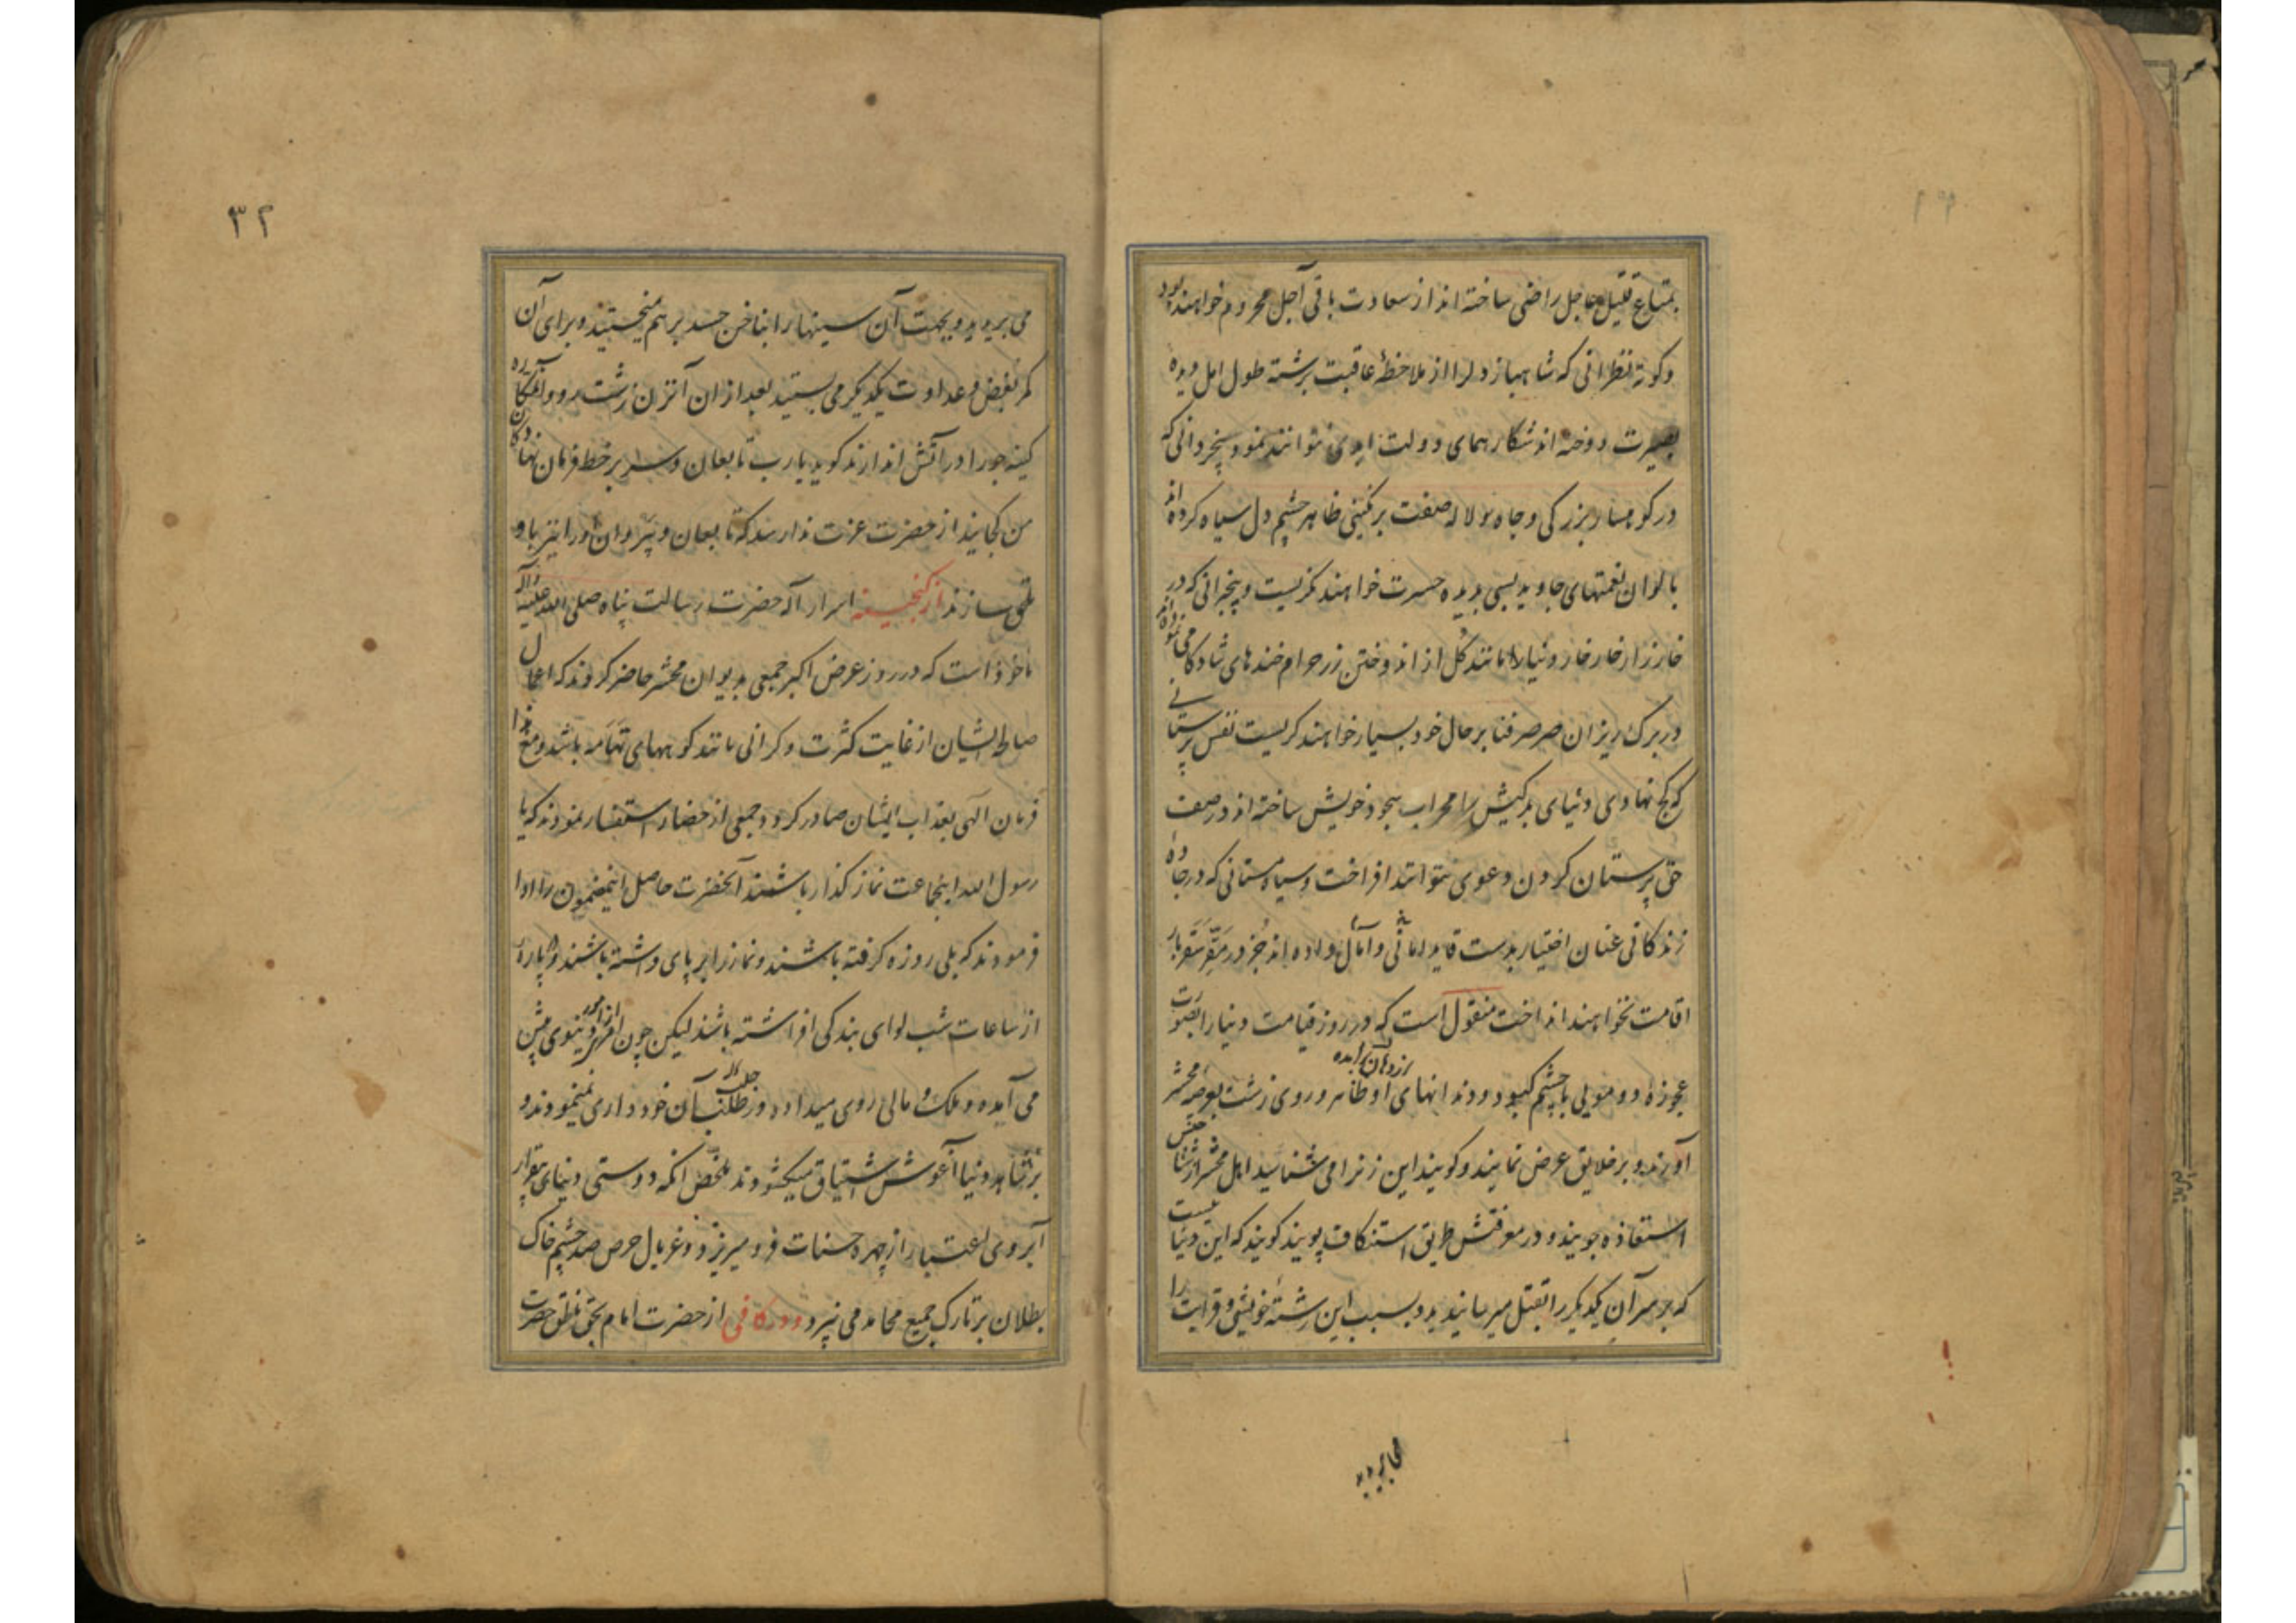 بمتاع قلیل عاجل راضی ساخته‌اند از سعادت باقی آجل محروم خواهند بود
و کوته نظرانی که شاهباز دلرا از ملاحظهٔ عاقبت برشته طول امل دیده
بصیرت دوخته‌اند شکار همای دولت ابدی نتوانند نمود و بیخردانی که
در کوهسار بزرکی و جاه لاله صفت برنکینی ظاهر چشم دل سیاه کرده‌اند
بالوان نعمتهای جاوید بسی بدیده حسرت خواهند نکریست و بیخبرانی که در
خارزار خار خار دنیا مانند گل از اندوختن زر حرام خندهای شادکامی نموده‌اند
در برک ریزان صرصر فنا بر حال خود بسیار خواهند کریست نفس پرستانی
که کج نهادی دنیای بدکیش را محراب سجود خویش ساخته‌اند در صف
حق پرستان کردن دعوی نتوانند افراخت و سیاه مستانی که در جاده
زندکانی عنان اختیار بدست قاید امانی و آمال داده‌اند جز در مقر سقر بار
اقامت نخواهند انداخت منقول است که در روز قیامت دنیا را بصورت
عجوزهٔ دو مویی با چشم کبود و دندانهای او ظاهر و روی زشت بعرصه محشر
از دهان برآمده
آورند و بر خلایق عرض نمایند و کویند این زنرا می شناسید اهل محشر از شناختنش
استعاذه جویند و در معرفتش طریق استنکاف پویند کویند که این دنیاست
که بر سر آن یکدیکر را بقتل میرسانیدید و بسبب این رشتهٔ خویشی و قرابت را
می بریدید
۳۲
می بریدید و بجهت آن سینها را بناخن حسد بر هم میخستید و برای آن
کمر بغض و عداوت یکدیکر می بستید بعد از ان آنزن زشت رو و آن مکاره
کینه جو را در آتش اندازند کوید یا رب تابعان و سر بر خط فرمان نهادکان
من کجایند از حضرت عزت ندا رسد که تابعان و پیروان او را نیز باو
ملحق سازند از کنجینه اسرار آله حضرت رسالت پناه صلی الله علیه و آله
ماخوذ است که در روز عرض اکبر جمعی بدیوان محشر حاضر کردند که اعمال
صالحه ایشان از غایت کثرت و کرانی مانند کوههای تهامه باشد و مع هذا
فرمان الهی بعذاب ایشان صادر کردد جمعی از حضار استفسار نمودند که یا
رسول الله اینجماعت نماز کذار باشند آنحضرت حاصل اینمضمون را ادا
فرمودند که بلی روزه کرفته باشند و نماز را بر پای داشته باشند و پارهٔ
از ساعات شب لوای بندکی افراشته باشند لیکن چون امری از امور دنیوی پیش
می آمده و ملک و مالی روی میداده در طلب آن خود داری نمینمودند و
بر شاهد دنیا آغوش اشتیاق میکشودند ملخص آنکه دوستی دنیای بیمقدار
آبروی اعتبار از چهره حسنات فرو میریزد و غربال حرص صد چشم خاک
بطلان بر تارک جمیع محامد می بیزد و در کافی از حضرت امام بحق ناطق حضرت